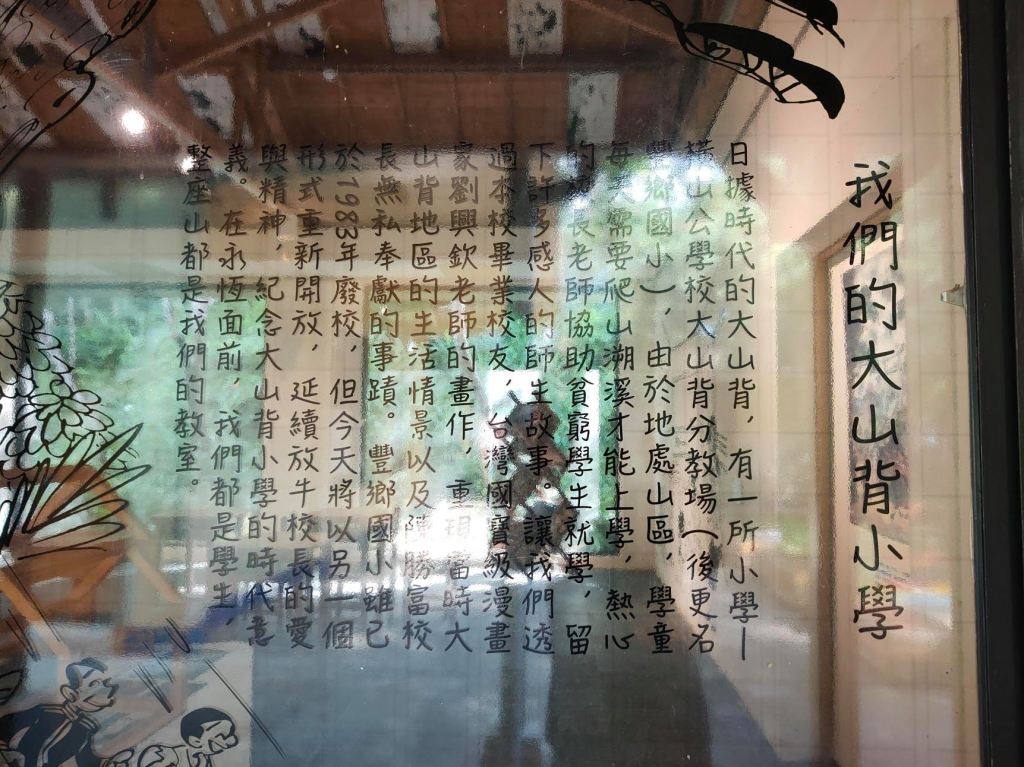 我們的大山背小學
日據時代的大山背，有一所小學—
橫山公學校大山背分教場（後更名
豐鄉國小），由於地處山區，學童
每天需要爬山溯溪才能上學，熱心
的校長老師協助貧窮學生就學，留
下許多感人的師生故事。讓我們透
過本校畢業校友，台灣國寶級漫畫
家劉興欽老師的畫作，重現當時大
山背地區的生活情景以及陳勝富校
長無私奉獻的事蹟。豐鄉國小雖已
於1983年廢校，但今天將以另一個
形式重新開放，延續放牛校長的愛
與精神，紀念大山背小學的時代意
義。在永恆面前，我們都是學生，
整座山都是我們的教室。